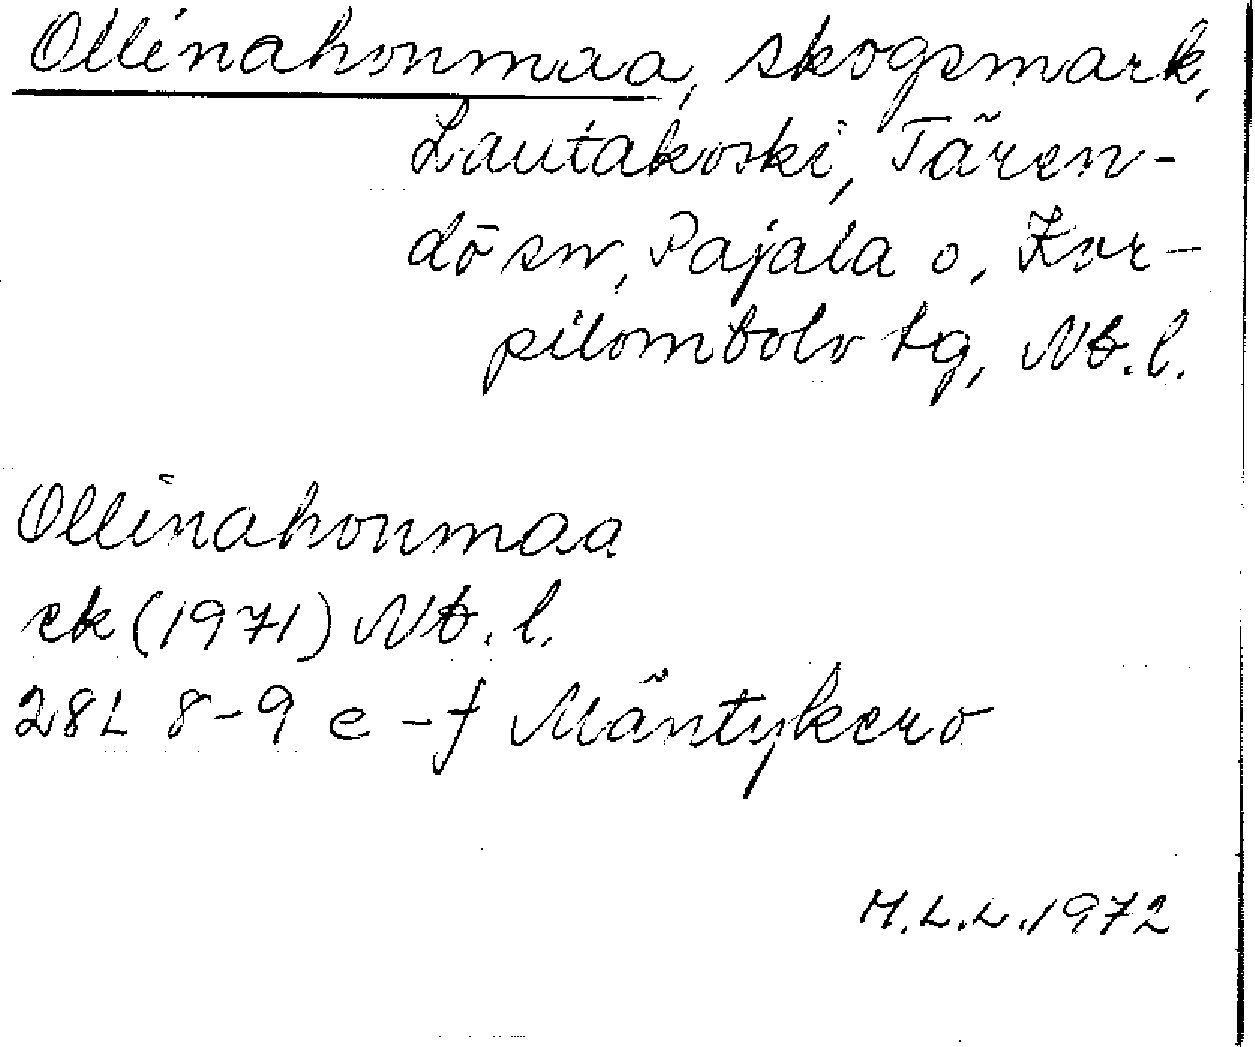 Ollinahonmaa, skogsmark,
Lautakoski, Tären-
dö sn, Pajala o, Kor-
pilombolo tg, Nb. l.
Ollinahonmaa
ek (1971) Nb. l.
28L 8-9 e-f Mäntykero
M.L.L. 1972